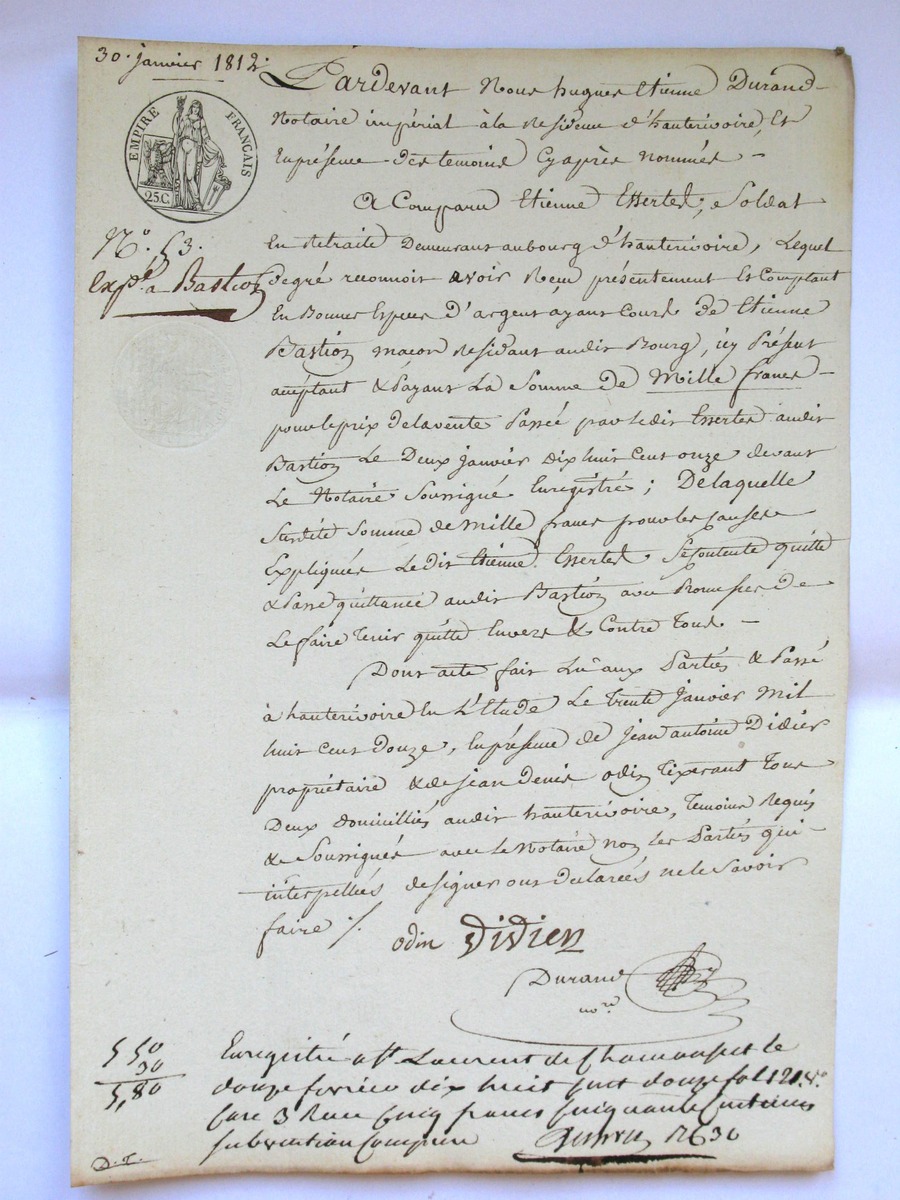 30. janvier 1812.
EMPIRE FRANÇAIS
25 C.
N.o 53.
Exp.é a Bastion
Pardevant Nous hugues Etienne Durand
Notaire impérial à la Residence d'hauterivoire, Et
En présence des temoins Cy après nommés –
A Comparu Etienne Essertel, Soldat
En Retraite Demeurant au bourg d'hauterivoire, Lequel
degré reconnoit avoir Reçu présentement Et Comptant
En Bonnes Especes D'argent ayant Cours De Etienne
Bastion maçon Residant audit Bourg, icy Présent
acceptant & Payant La Somme De Mille francs –
pour le prix de la vente Passée par Ledit Essertel audit
Bastion Le Deux janvier dix huit Cent onze devant
Le Notaire Soussigné Enregistré ; De laquelle
Susdite Somme de Mille francs pour les Causes
Expliquées Ledit Etienne Essertel Se Contente quitte
& Passe quittance audit Bastion avec Promesse De
Le faire Tenir quitte Envers & Contre Tous –
Dont acte fait Lû aux Parties & Passé
à hauterivoire En L'Etude Le Trente janvier Mil
huit Cent Douze, En présence de jean antoine Didier
propriétaire & de jean Denis odin Tixerant Tous
Deux domiciliés audit hauterivoire, Temoins Requis
& Soussignés avec le Notaire non les Parties qui
interpellées de signer ont declarées ne le Savoir
faire ./.
odin Didier
Durand
no.re
5 50
30
5,80
Enregistré a St Laurent de Chamousset le
douze fevrier dix huit cent douze fol 121 v.o
Case 3 Reçu Cinq francs Cinquante Centimes
subvention Comprise
D. T.